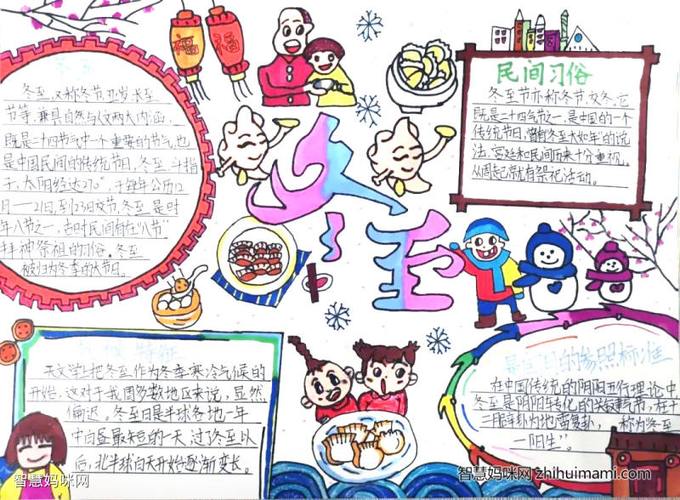 福
福
冬至
冬至,又称冬节、
节等,兼具自然与人文两大内涵,
既是二十四节气中一个重要的节气,也
是中国民间的传统节日。冬至
子,太阳黄经达270°,于每年公历12
月
年八节之一,古时民间有在"八节"
拜神祭祖的习俗。冬至
被归为冬季的大节日。
民间习俗
冬至节亦称冬节、交冬。它
既是二十四节气之一,是中国的一个
传统节日,曾有"冬至大如年"的说
法,宫廷和民间历来十分重视,
从周起就有祭祀活动。
冬至
气候特征
天文学上把冬至作为冬季寒冷气候的
开始,这对于我国多数地区来说,显然
偏迟。冬至日是北半球各地一年
中白昼最短的一天,过了冬至以
后,北半球白天开始逐渐变长。
的参照标准
在中国传统的阴阳五行理论中
冬至是阴阳转化的关键节气,在十
二辟卦为地雷复卦,称为冬至
一阳生"。
智慧妈咪网
智慧妈咪网 zhihuimami.com